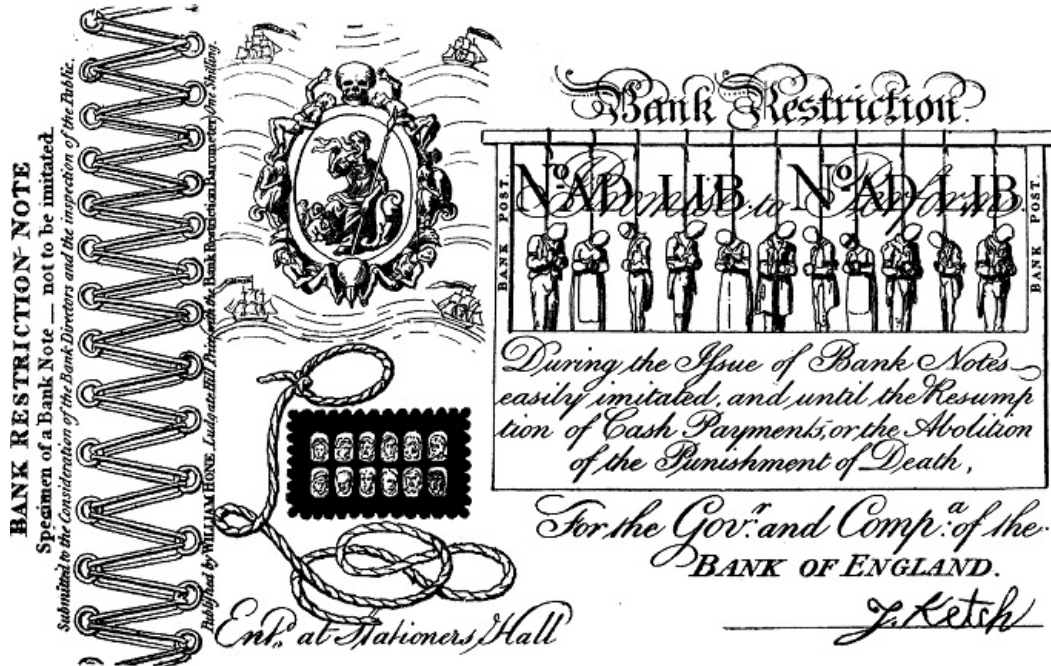 BANK RESTRICTION-NOTE
Specimen of a Bank Note — not to be imitated.
Submitted to the Consideration of the Bank Directors and the inspection of the Public.
Published by WILLIAM HONE Ludgate Hill Price with the Bank Restriction Barometer, One Shilling.
Bank Restriction.
BANK POST.
No. AD LIB No. AD LIB
I Promise to Perform
BANK POST.
During the Issue of Bank Notes
easily imitated, and until the Resump
tion of Cash Payments, or the Abolition
of the Punishment of Death,
For the Govr. and Compa. of the
BANK OF ENGLAND.
J. Ketch
Entd. at Stationers Hall